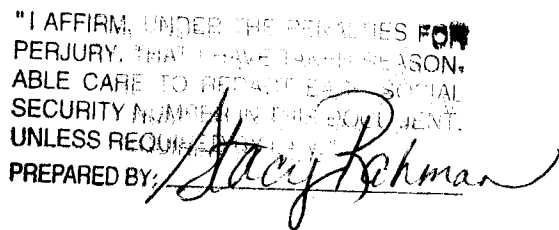 "I AFFIRM, UNDER THE PENALTIES FOR
PERJURY, THAT I HAVE TAKEN REASON-
ABLE CARE TO REDACT EACH SOCIAL
SECURITY NUMBER IN THIS DOCUMENT,
UNLESS REQUIRED BY LAW."
PREPARED BY: Stacy Rahman